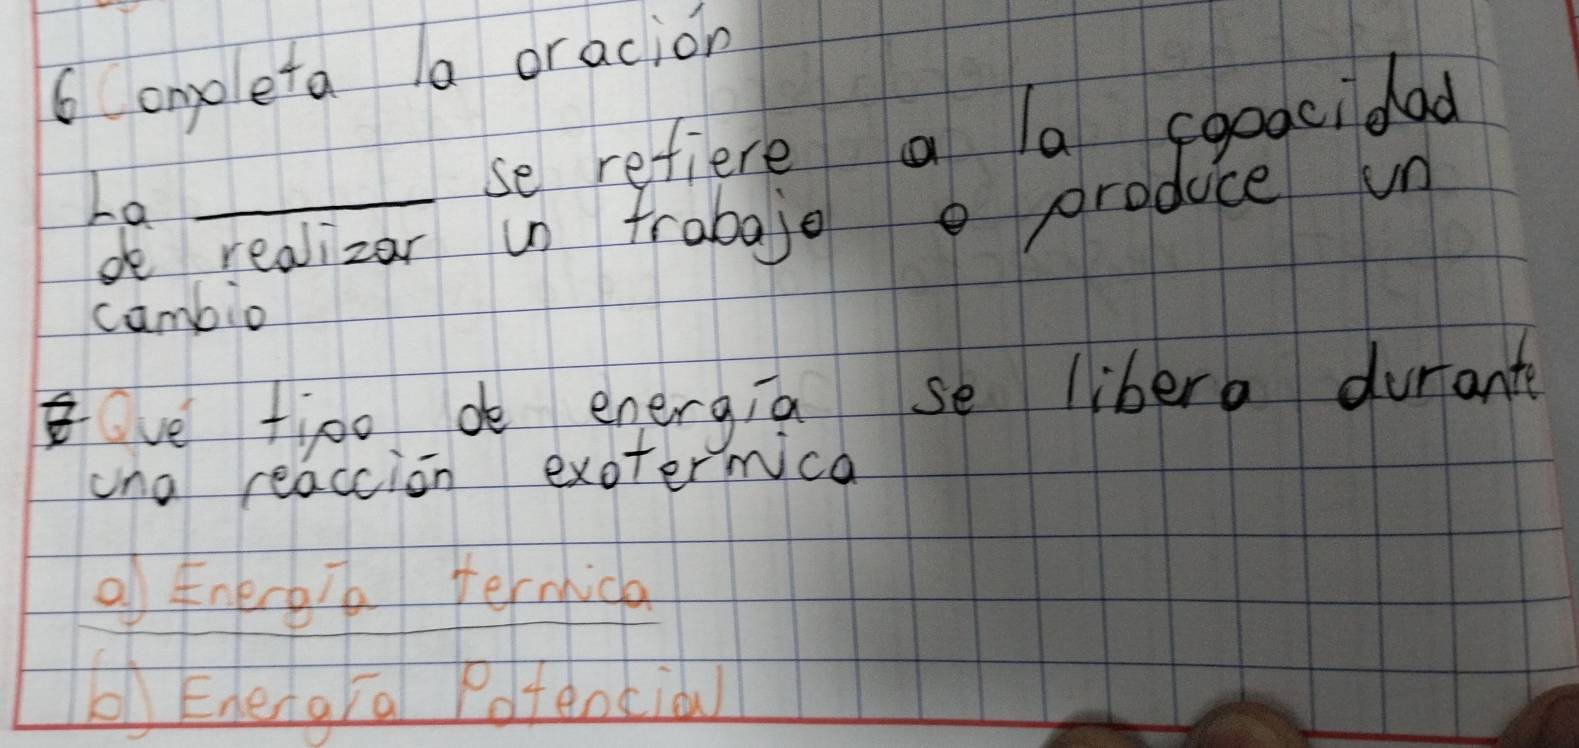 6 Completa la oración
La ________ se refiere a la capacidad
de realizar un trabajo o produce un
cambio
7 Qué tipo de energía se libera durante
una reacción exotermica
a) Energía termica
b) Energía Potencial